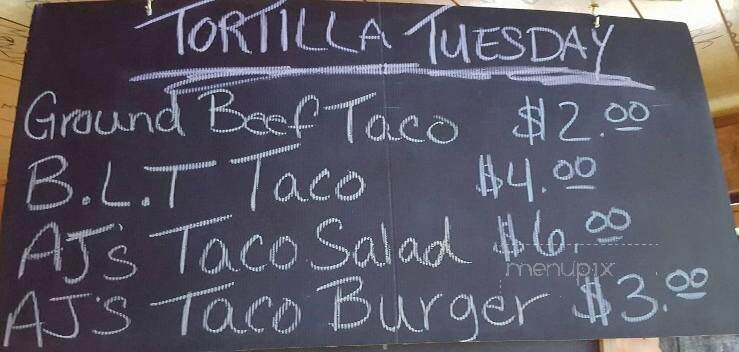 TORTILLA TUESDAY
Ground Beef Taco $2.00
B.L.T Taco $4.00
AJ's Taco Salad $6.00
menupix
AJ's Taco Burger $3.00